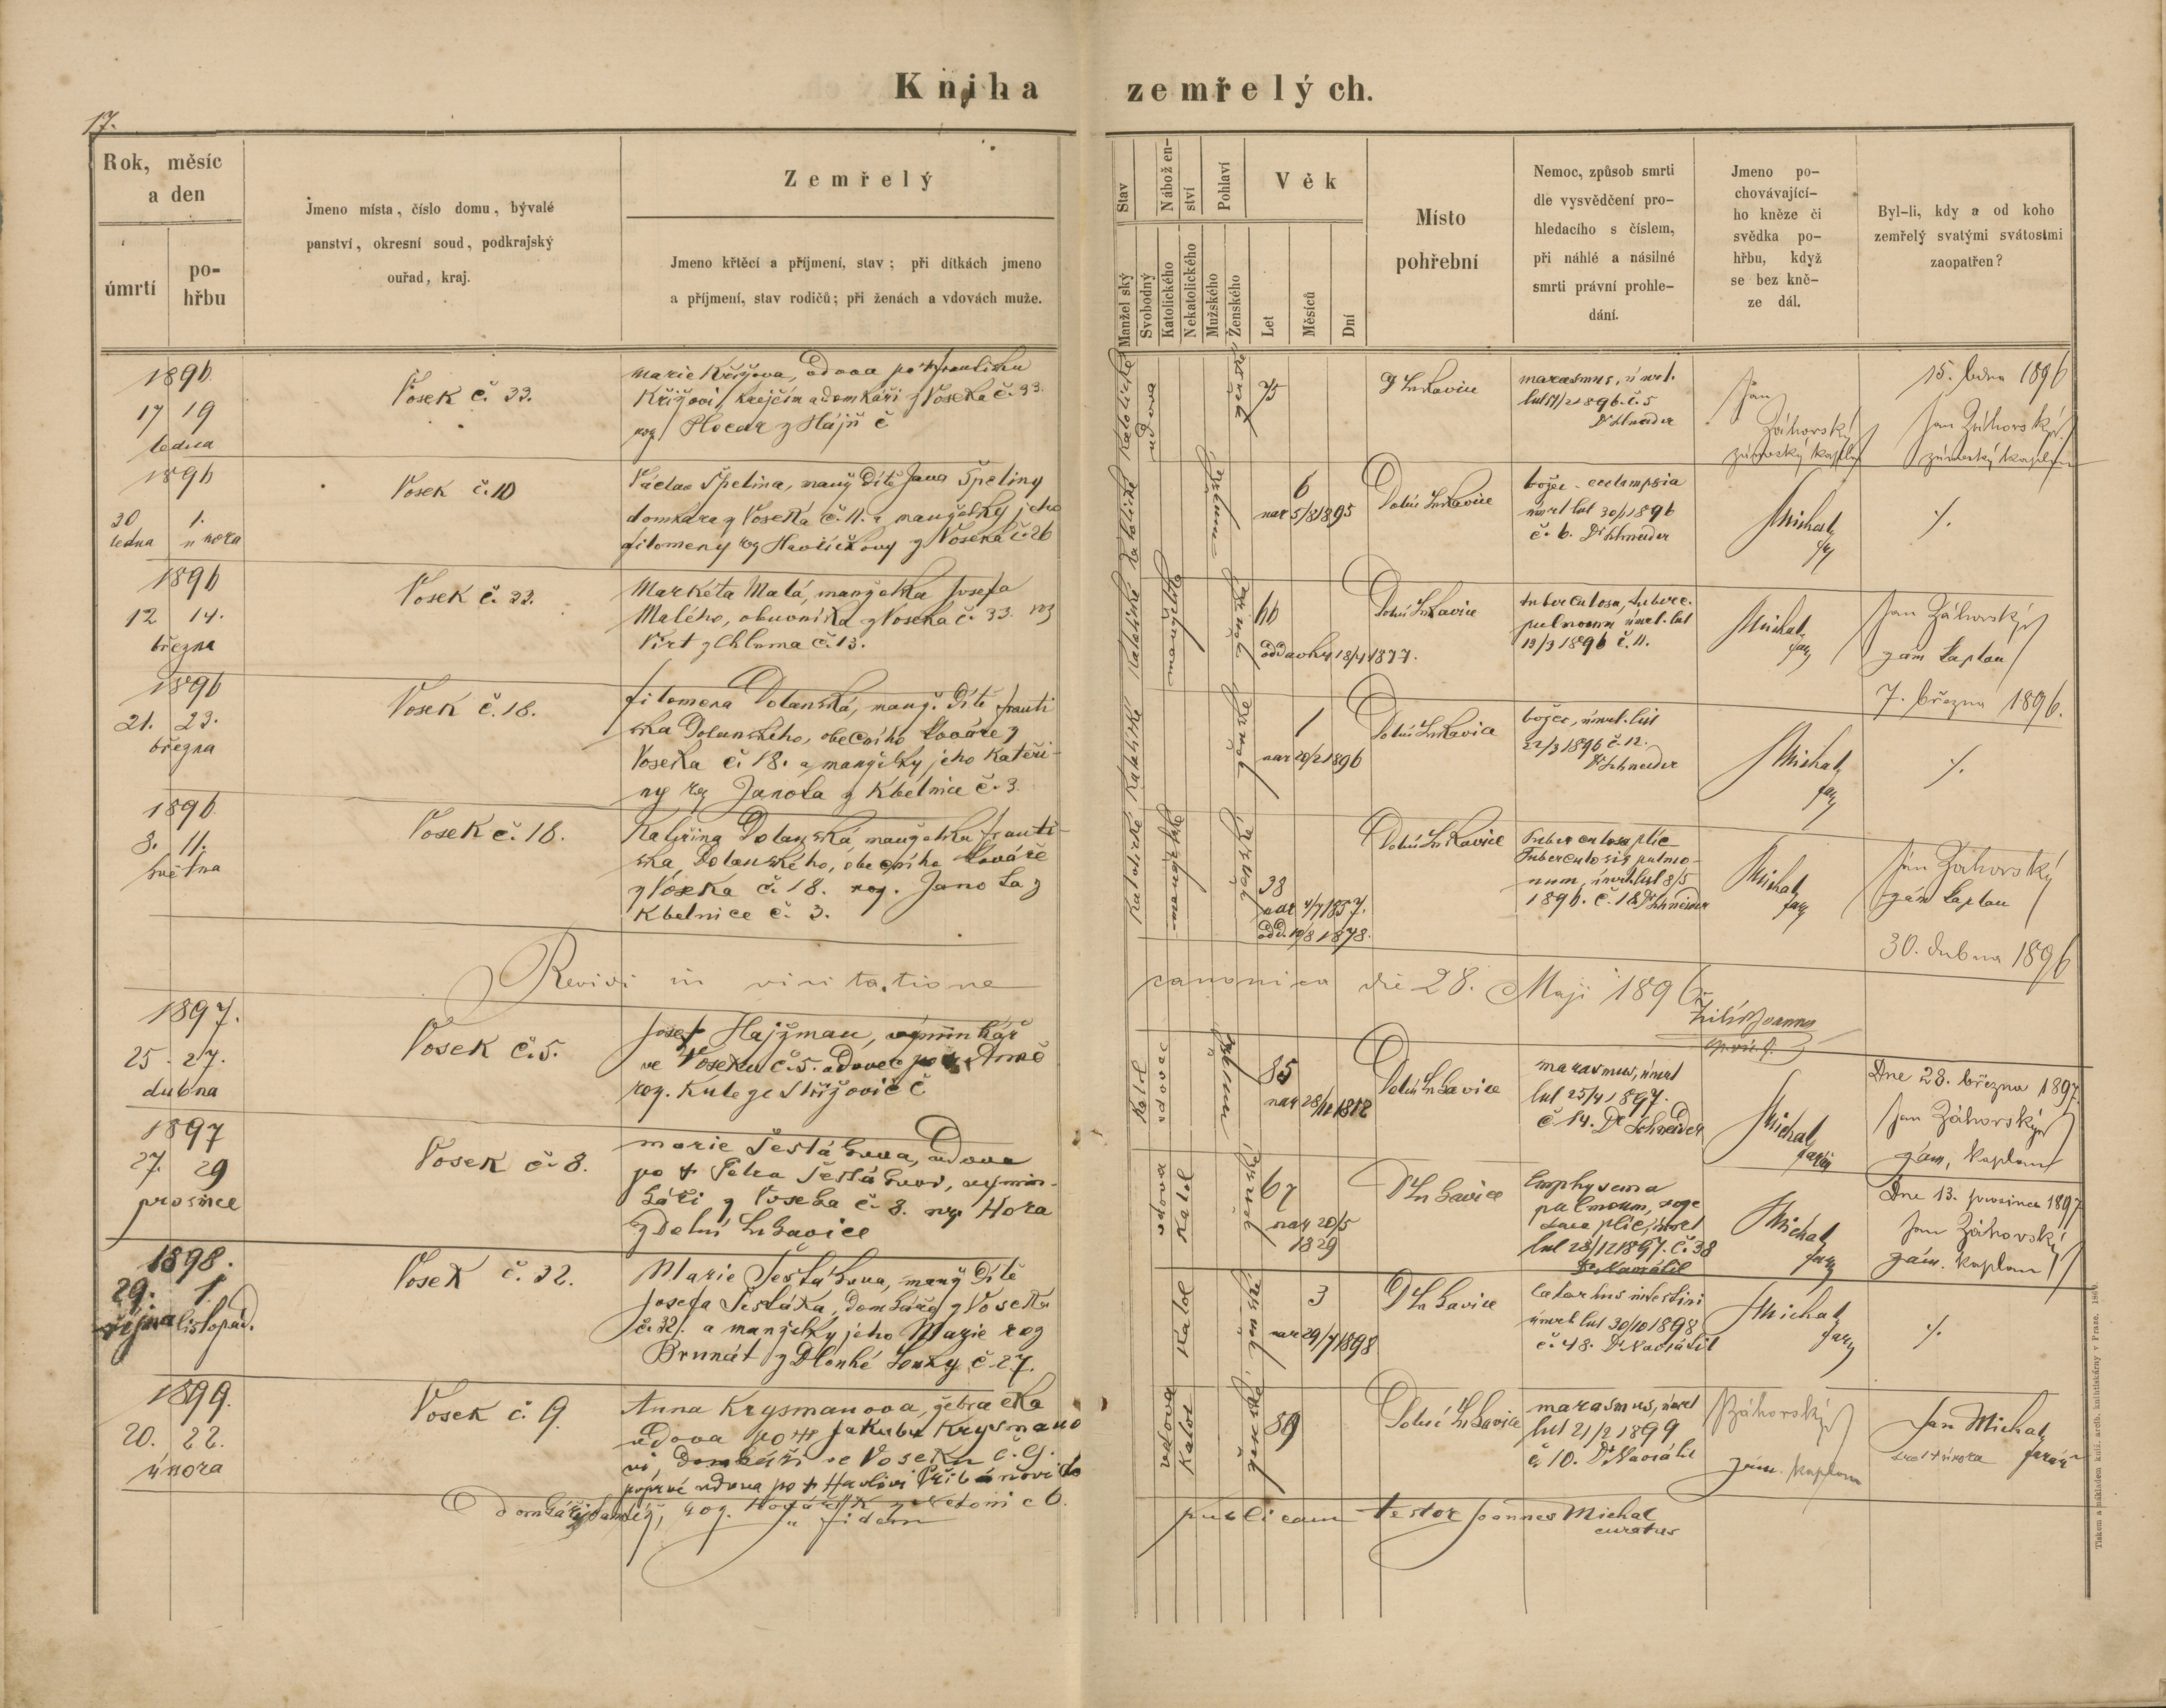 Kniha zemřelých.
17.
Rok, měsíc
a den
úmrtí
po-
hřbu
Jmeno místa, číslo domu, bývalé
panství, okresní soud, podkrajský
ouřad, kraj.
Zemřelý
Jmeno křtěcí a příjmení, stav; při dítkách jmeno
a příjmení, stav rodičů; při ženách a vdovách muže.
Stav
Manželský
Svobodný
Náboženství
Katolického
Nekatolického
Pohlaví
Mužského
Ženského
Věk
Let
Měsíců
Dní
Místo
pohřební
Nemoc, způsob smrti
dle vysvědčení pro-
hledacího s číslem,
při náhlé a násilné
smrti právní prohle-
dání.
Jmeno po-
chovávající-
ho kněze či
svědka po-
hřbu, když
se bez kně-
ze dál.
Byl-li, kdy a od koho
zemřelý svatými svátostmi
zaopatřen?
1896
17 19
ledna
Vosek č. 33.
Marie Křížova, vdova po Františku
Křížovi, krejčím a domkáři z Voseka č. 33
katolické
vdova
ženské
75
D Lukavice
marasmus, úmrt.
č. 5
Dr Schneider
Jan
Záhorský
zámecký kaplan
15. ledna 1896
Jan Záhorský
zámecký kaplan
1896
30 1.
ledna února
Vosek č. 10
Václav Špelina, manž dítě Jana Špeliny
domkáře z Voseka č. 11. a manželky jeho
Filomeny roz Havlíčkovy z Voseka č. 26
katolické
6
nar 5/8 1895
Dolní Lukavice
božec - eclampsia
úmrt list 30/1 1896
č. 6. Dr Schneider
Michal
far
1896
12 14.
března
Vosek č. 33.
Markéta Malá, manželka Josefa
Malého, obuvníka z Voseka č. 33. roz
Virt z Chluma č. 13.
katolické
manželka
ženské
66
1877.
Dolní Lukavice
pulmonum úmrt. list
13/3 1896 č. 11.
Michal
far
Jan Záhorský
zám kaplan
7. března 1896.
1896
21. 23.
března
Vosek č. 18.
Filomena Dolanská, manž. dítě Franti
ška Dolanského, obecního kováře z
Voseka č. 18. a manželky jeho Kateři-
ny roz Janota z Kbelnice č. 3
katolické
ženské
1
nar 20/2 1896
Dolní Lukavice
božec, úmrt. list
22/3 1896 č. 12.
Dr Schneider
Michal
far
1896
8. 11.
května
Vosek č. 18.
Kateřina Dolanská manželka Franti-
ška Dolanského, obecního kováře
z Voseka č. 18. roz. Janota z
Kbelnice č. 3.
katolické
manželka
ženské
38
nar 4/7 1857.
odd. 19/8 1878.
Dolní Lukavice
Tuberculosa plic
Tuberculosis pulmo-
num, úmrt list 8/5
1896. č. 18 Dr Schneider
Michal
far
Jan Záhorský
zám kaplan
30. dubna 1896
Revidi in visitatione canonica die 28. Maji 1896
1897.
25. 27.
dubna
Vosek č. 5.
Josef Hajžman, výminkář
ve Voseku č. 5. vdovec po
katol
vdovec
85
nar 28/12 1812
Dolní Lukavice
marasmus, úmrt
list 25/4 1897.
č 14. Dr Schneider
Michal
farář
Dne 28. března 1897.
Jan Záhorský
zám, kaplan
1897
27. 29
prosince
Vosek č. 8.
Marie Šestákova, vdova
po † Petru Šestákovi, výmin-
káři z Voseka č. 8. roz. Hora
z Dolní Lukavice
vdova
katol
ženské
67
nar 20/5
1829
D Lukavice
Emphysema
pulmonum, roze
dma plic, úmrt
list 28/12 1897. č. 38
Dr Navrátil
Michal
far
Dne 13. prosince 1897
Jan Záhorský
zám. kaplan
1898.
29. 1.
října listopad.
Vosek č. 32.
Marie Šestákova, manž dítě
Josefa Šestáka, domkáře z Voseka
č. 32. a manželky jeho Marie roz
Brunát z Dlouhé Louky č. 27.
katol
ženské
3
nar 29/7 1898
D Lukavice
Catarhus intestini
úmrt list 30/10 1898
č. 48. Dr Navrátil
Michal
far
1899.
20. 22.
února
Vosek č. 9.
Anna Krysmanova, žebračka
vdova po † Jakubu Krysmano
vi, domkáři ve Voseku č. 9.
poprvé vdova po †
vdova
katol
ženské
89
Dolní Lukavice
marasmus, úmrt
list 21/2 1899
č. 10. Dr Navrátil
Záhorský
zám. kaplan
Jan Michal
farář
fidem publicam testor Joannes Michal
curatus